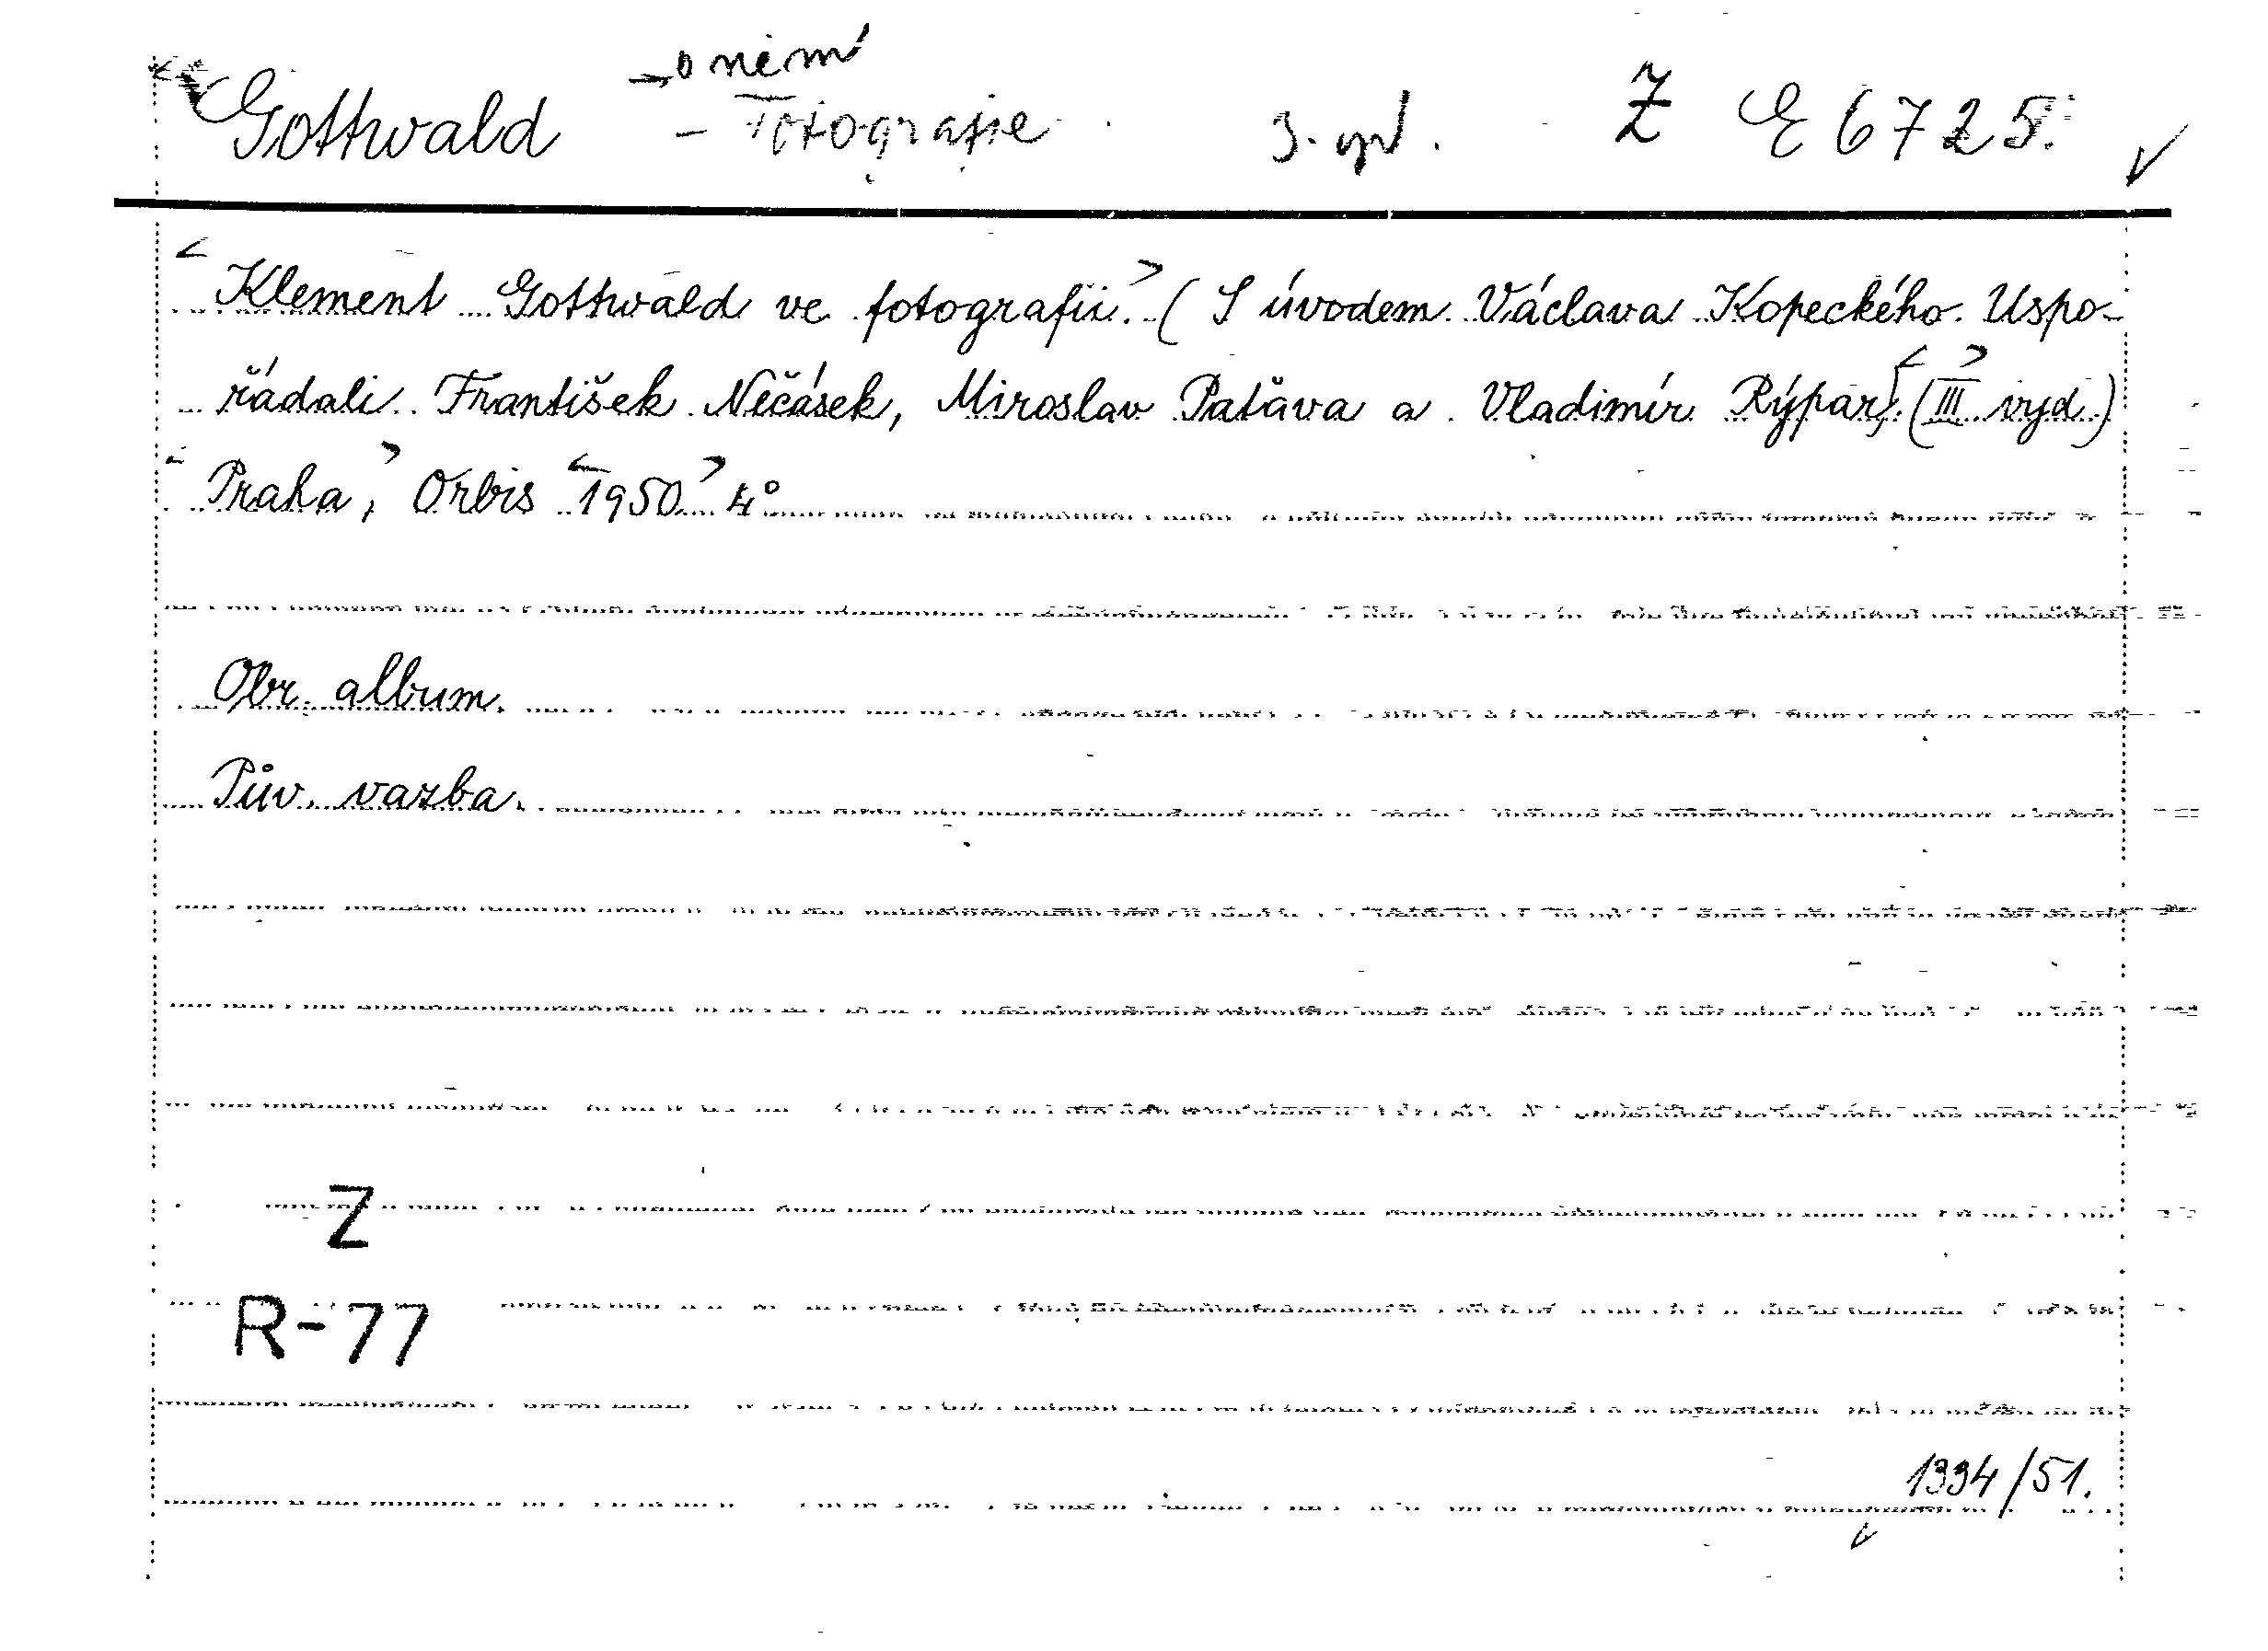 → o něm
Gottwald – Fotografie 3. vyd. Z E 6725.
Klement Gottwald ve fotografii. (S úvodem Václava Kopeckého. Uspo-
řádali František Nečásek, Miroslav Patava a Vladimír Rýpar.) (III vyd.)
Praha, Orbis 1950 4°
Obr. album.
Pův. vazba.
Z
R-77
1334/51.